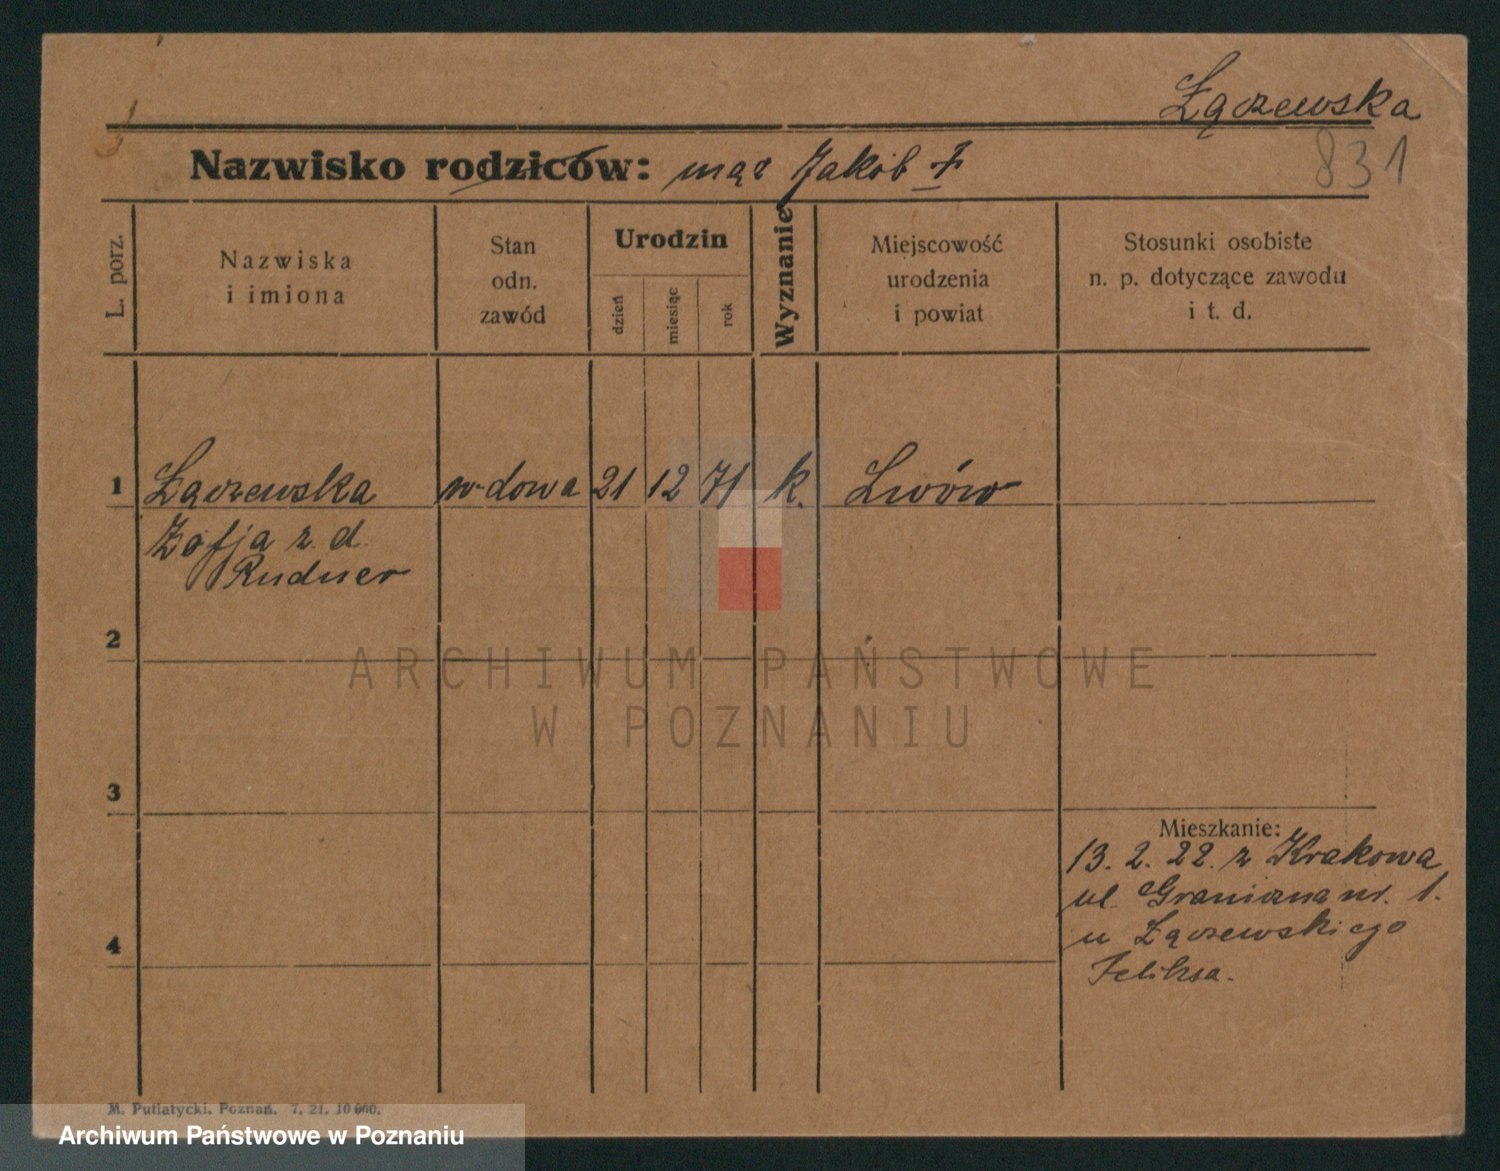 Łączewska
831
Nazwisko rodziców: mąż Jakób †
L. porz.
Nazwiska
i imiona
Stan
odn.
zawód
Urodzin
dzień
miesiąc
rok
Wyznanie
Miejscowość
urodzenia
i powiat
Stosunki osobiste
n. p. dotyczące zawodu
i t. d.
1 Łączewska wdowa 21 12 71 k. Lwów
Zofja z d.
Rudner
2
ARCHIWUM PAŃSTWOWE
W POZNANIU
3
Mieszkanie:
13. 2. 22. z Krakowa
ul. Graniczna nr. 1.
u Łączewskiego
Feliksa.
4
M. Putiatycki, Poznań. 7. 21. 10 000.
Archiwum Państwowe w Poznaniu